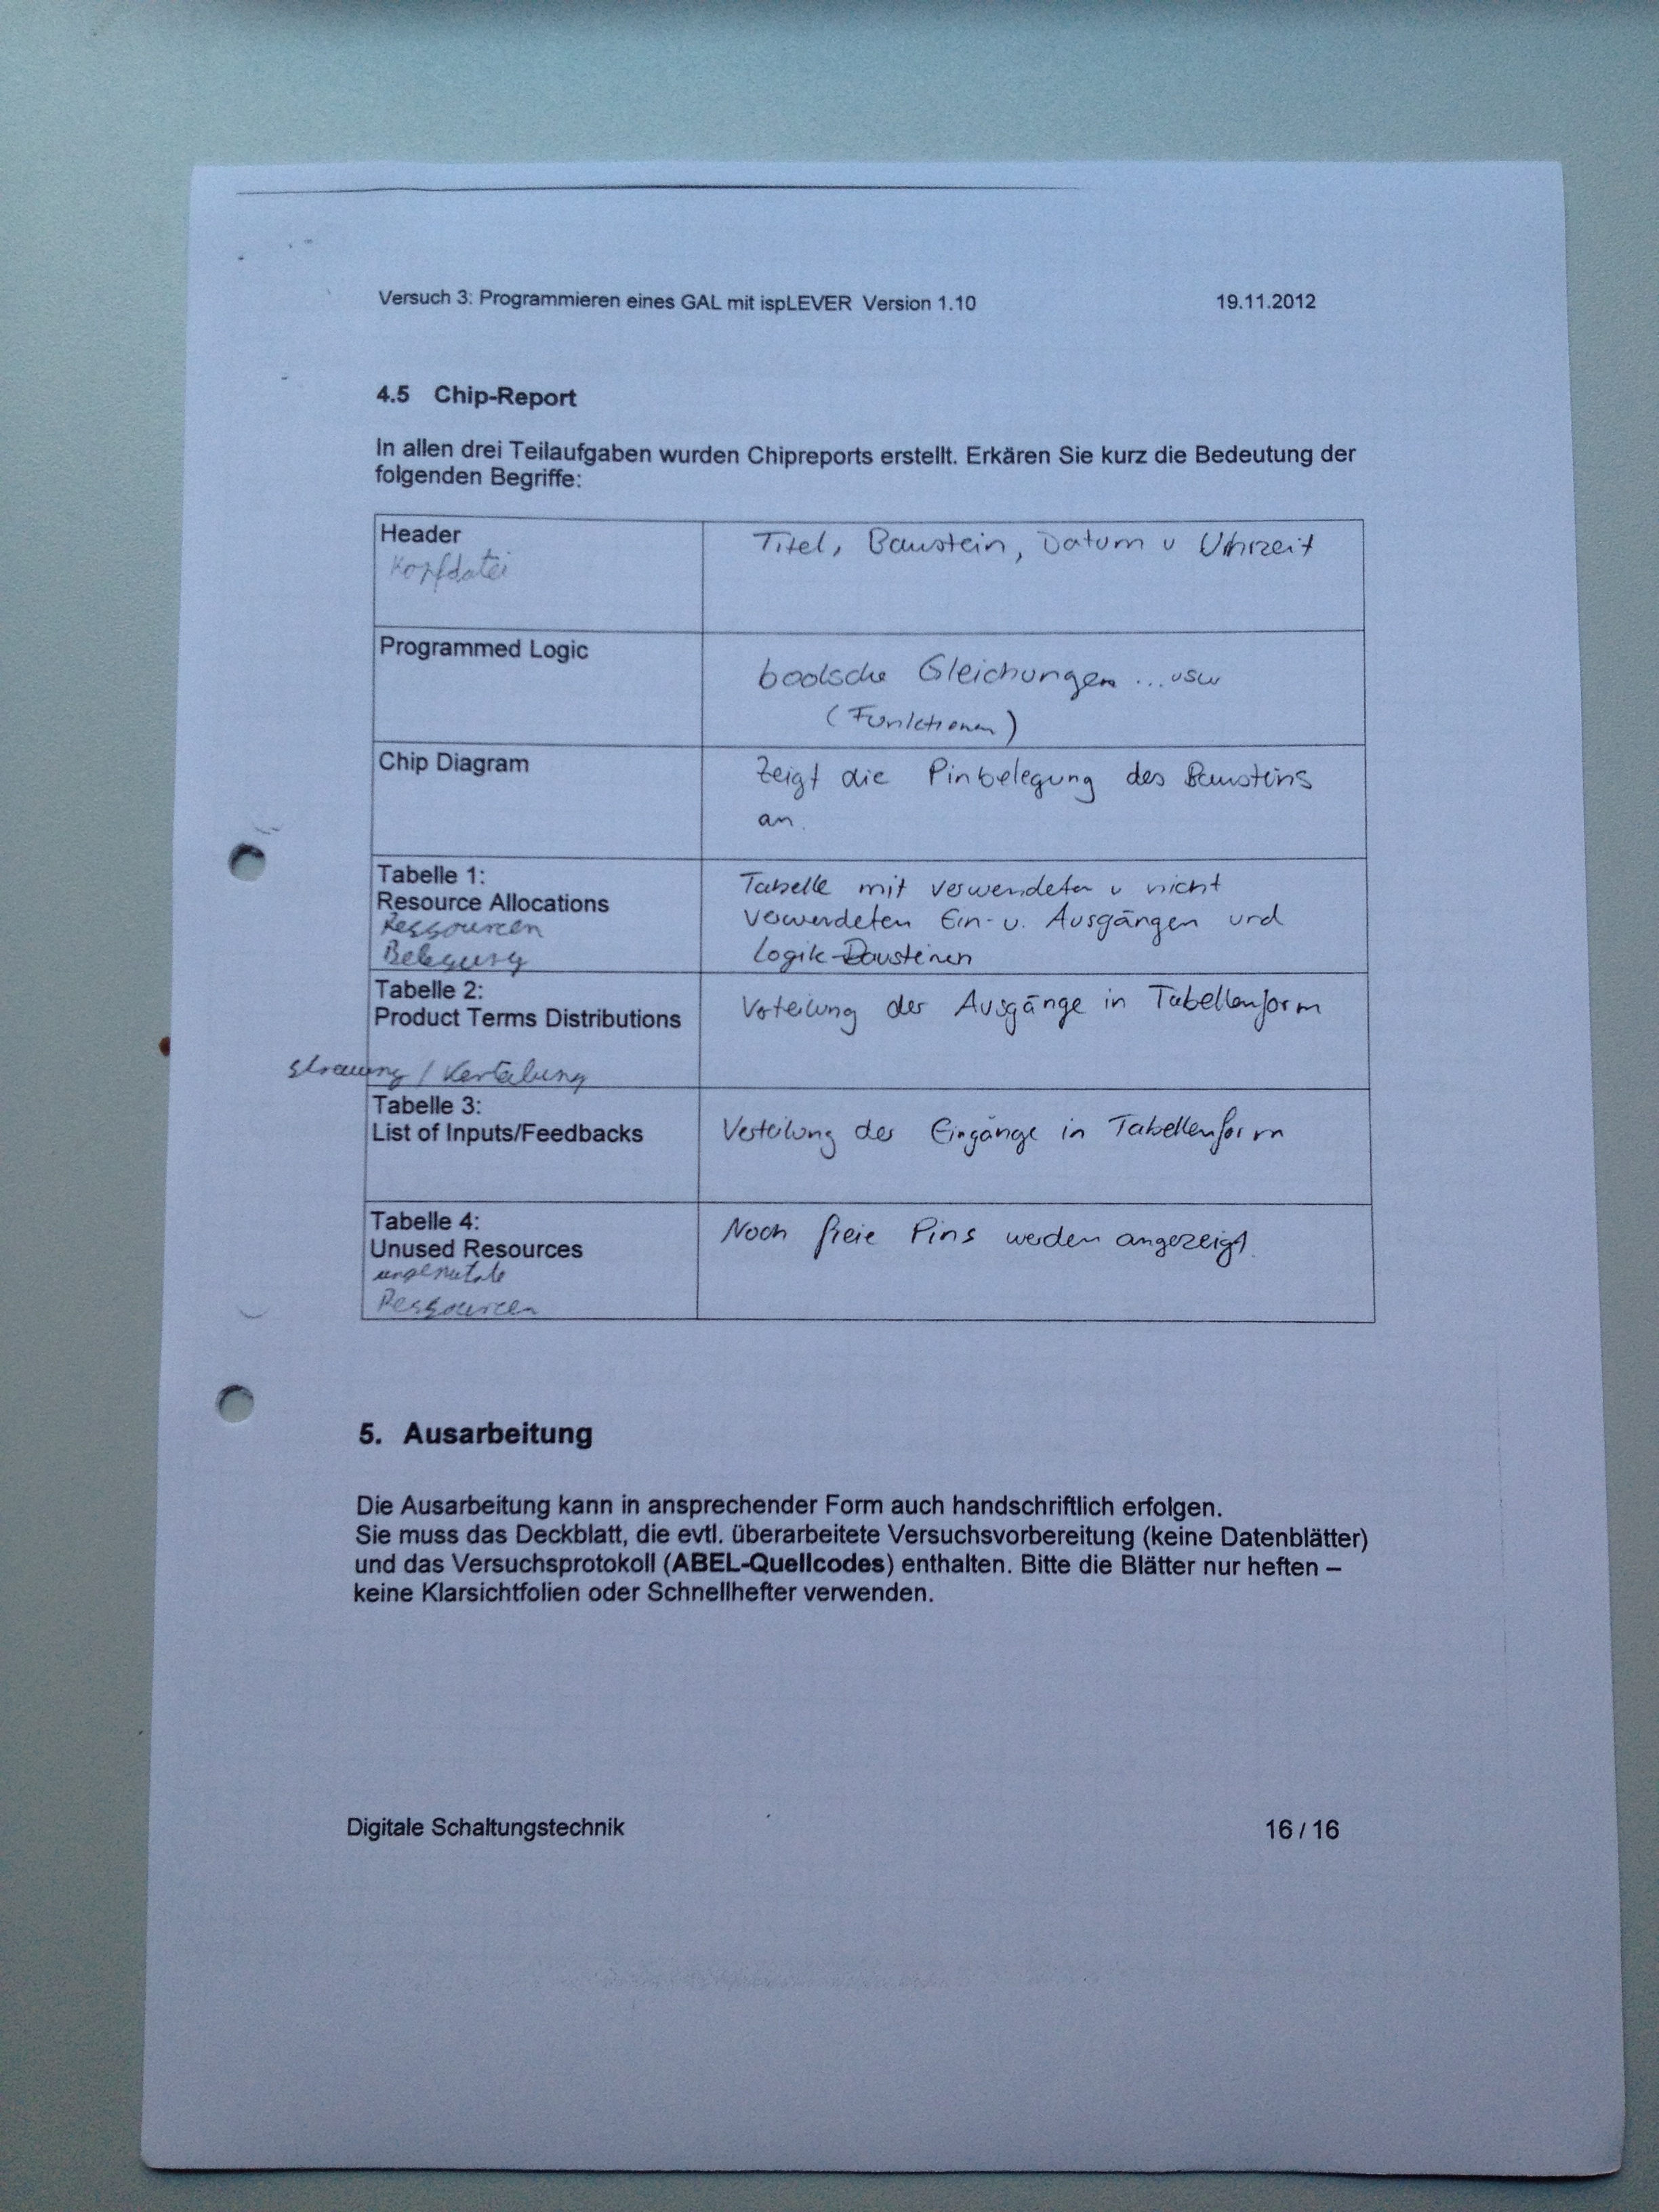 Versuch 3: Programmieren eines GAL mit ispLEVER Version 1.10 19.11.2012
4.5 Chip-Report
In allen drei Teilaufgaben wurden Chipreports erstellt. Erkären Sie kurz die Bedeutung der
folgenden Begriffe:
Header
Kopfdatei
Titel, Baustein, Datum u Uhrzeit
Programmed Logic
boolsche Gleichungen ... usw
(Funktionen)
Chip Diagram
Zeigt die Pinbelegung des Bausteins
an.
Tabelle 1:
Resource Allocations
Ressourcen
Belegung
Tabelle mit verwendeten u nicht
verwendeten Ein- u. Ausgängen und
Logik-Bausteinen
Tabelle 2:
Product Terms Distributions
Streuung / Verteilung
Verteilung der Ausgänge in Tabellenform
Tabelle 3:
List of Inputs/Feedbacks
Verteilung der Eingänge in Tabellenform
Tabelle 4:
Unused Resources
ungenutzte
Ressourcen
Noch freie Pins werden angezeigt.
5. Ausarbeitung
Die Ausarbeitung kann in ansprechender Form auch handschriftlich erfolgen.
Sie muss das Deckblatt, die evtl. überarbeitete Versuchsvorbereitung (keine Datenblätter)
und das Versuchsprotokoll (ABEL-Quellcodes) enthalten. Bitte die Blätter nur heften –
keine Klarsichtfolien oder Schnellhefter verwenden.
Digitale Schaltungstechnik 16 / 16